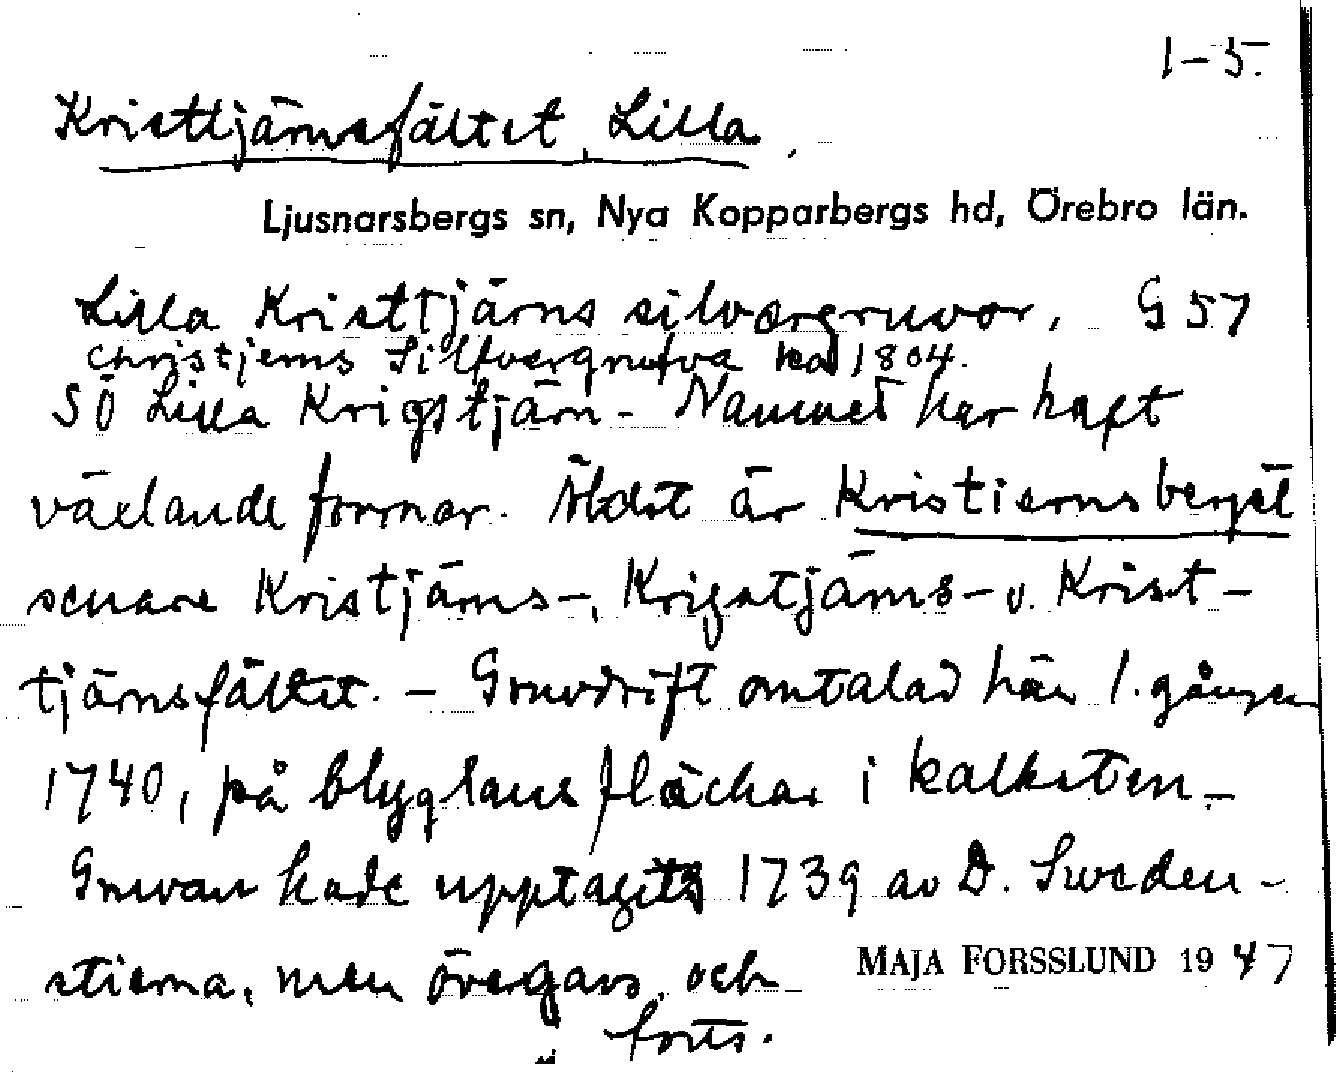 1-5.
Kristtjärnsfältet, Lilla.
Ljusnarsbergs sn, Nya Kopparbergs hd, Örebro län.
Lilla Kristtjärns silvergruvor, G 57
Christjerns Silfvergrufva 1804.
SÖ Lilla Krigstjärn - Namnet har haft
växlande former. Äldst är Kristiernsberget
senare Kristjärns-, Krigstjärns- o. Krist-
tjärnsfältet. - Gruvdrift omtalad här 1. gången
1740, på blyglansfläckar i kalksten -
Gruvan hade upptagits 1739 av D. Sweden-
stierna, men övergavs, och
MAJA FORSSLUND 1947
forts.